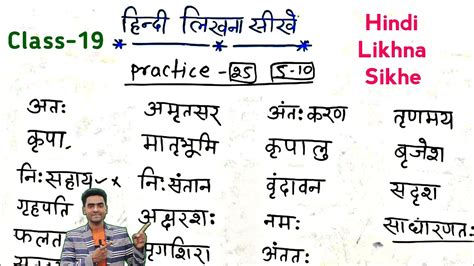 Class-19
हिन्दी लिखना सीखें
Hindi
Likhna
Sikhe
Practice - 25 5-10
अतः अमृतसर अंतःकरण तृणमय
कृपा मातृभूमि कृपालु बृजेश
निःसहाय निःसंतान वृंदावन सदृश
गृहपति अक्षरशः नमः साधारणतः
फलतः मृगशिरा अंततः